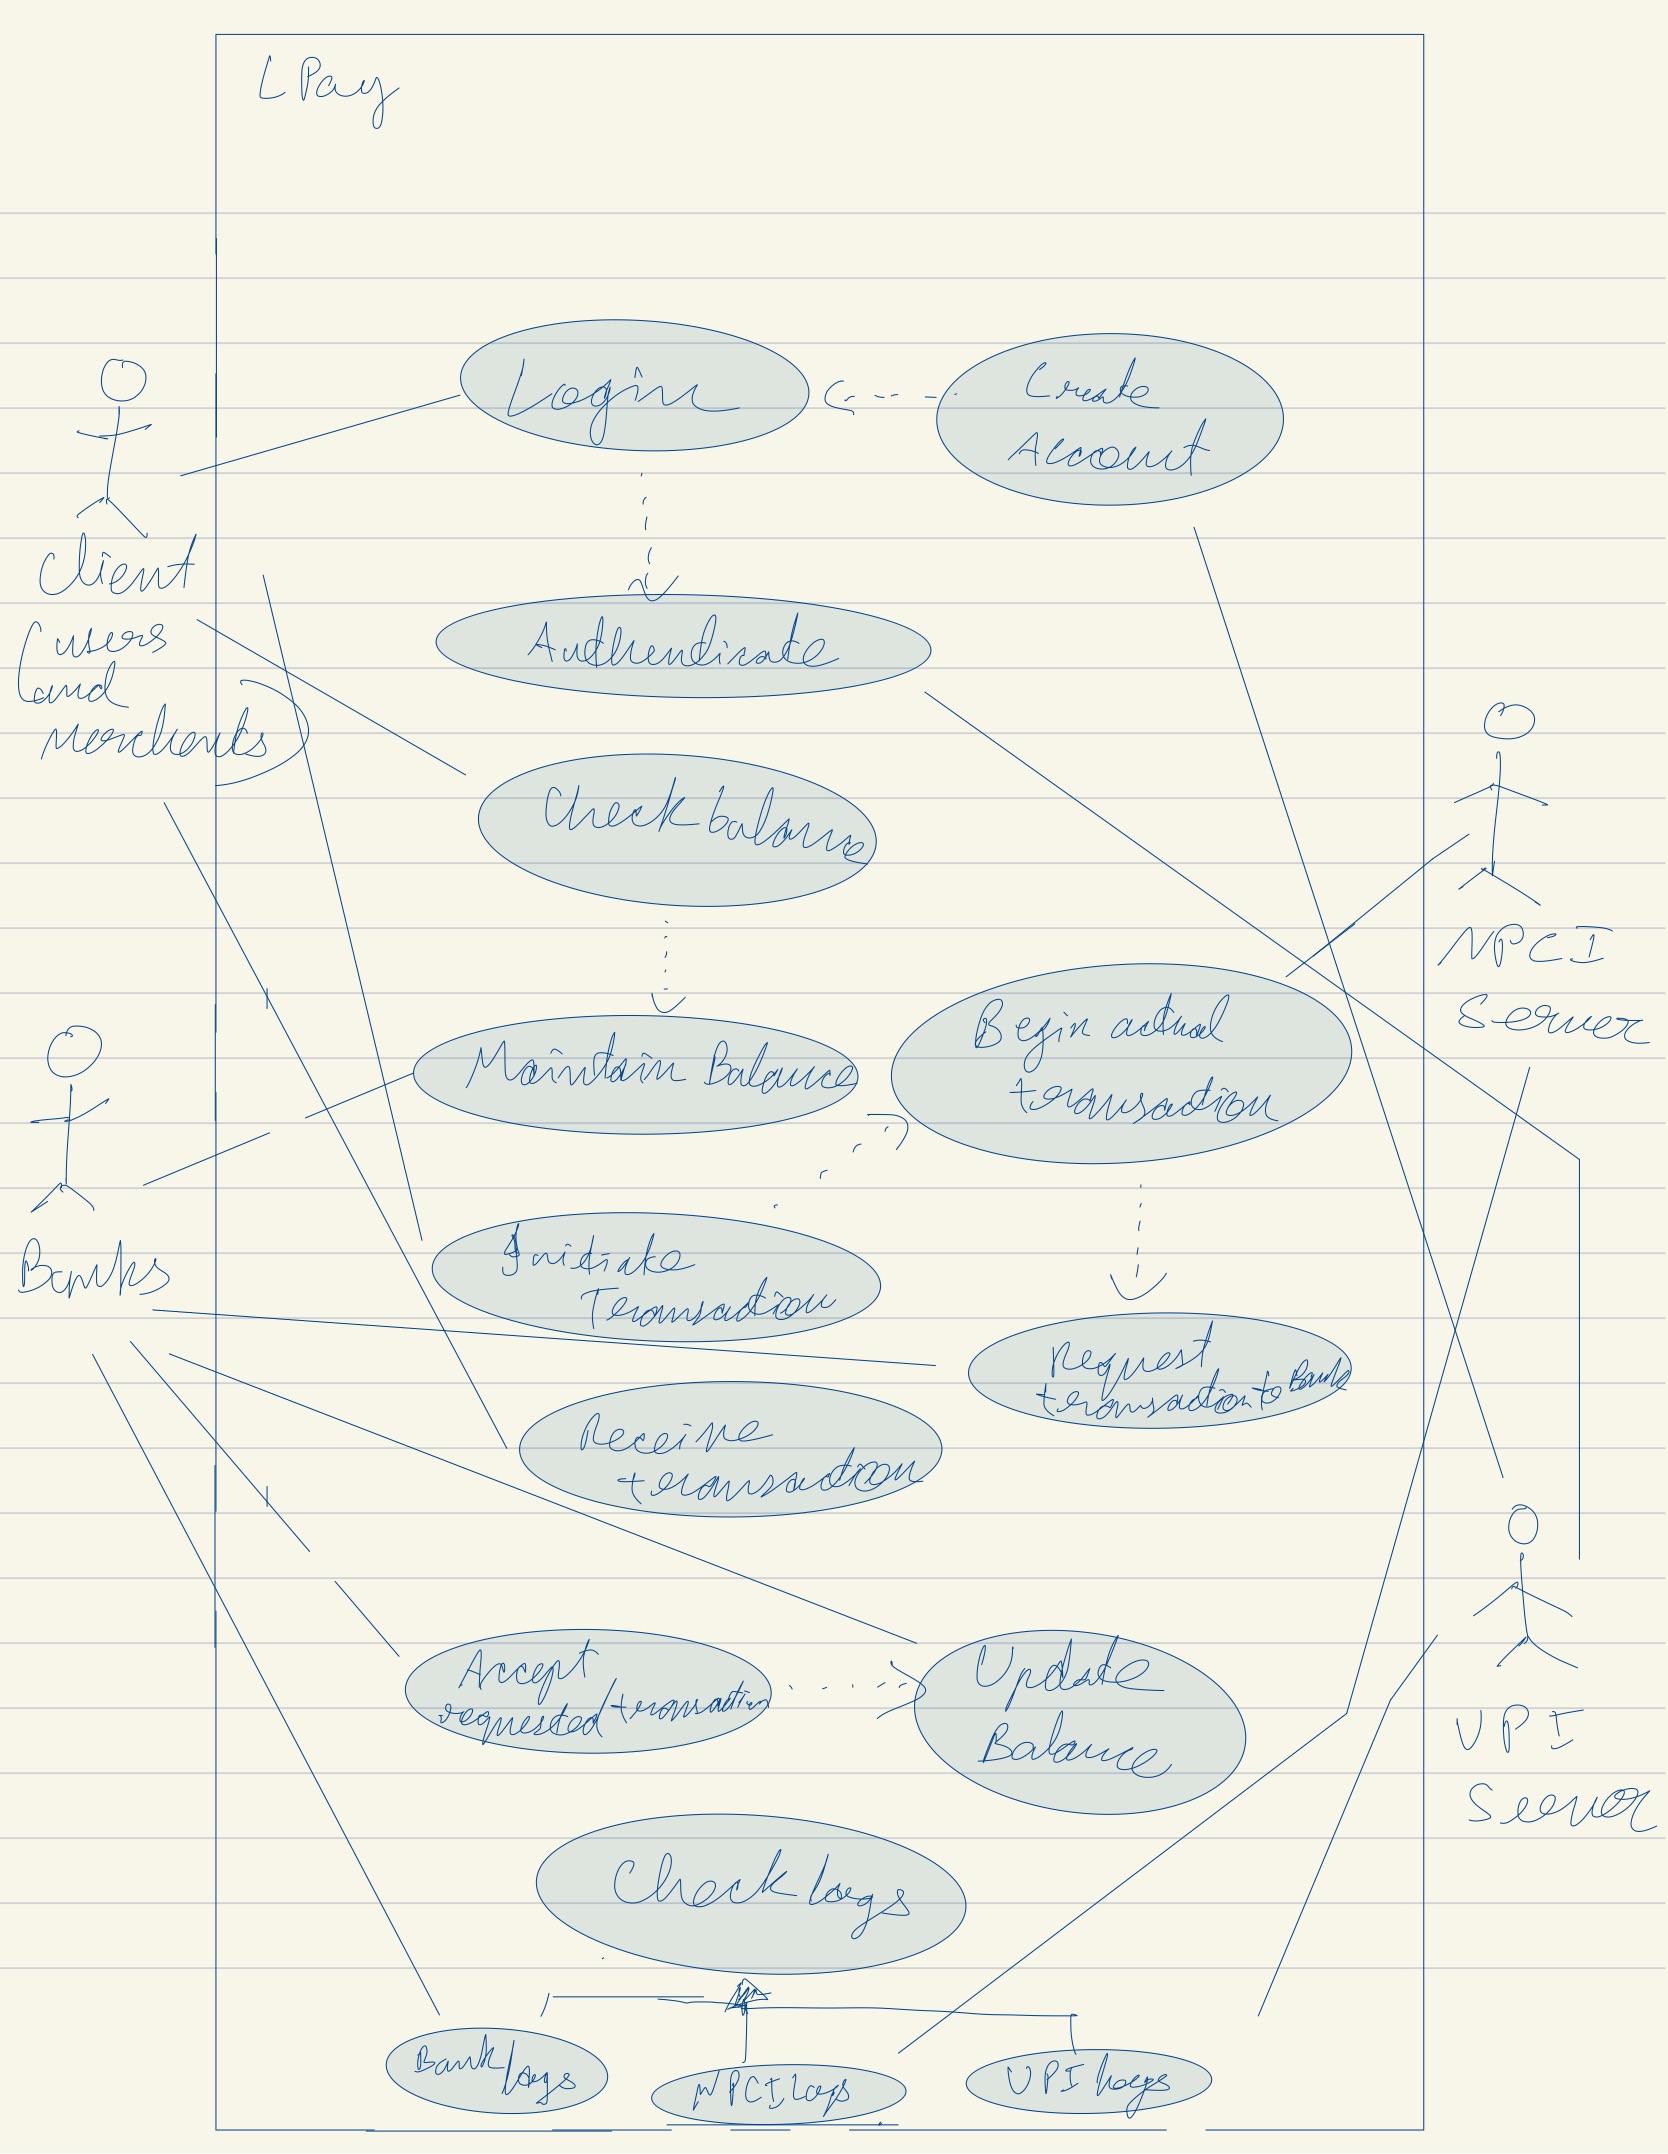 LPay
Login
Create
Account
Client
(users
and
Merchants)
Authenticate
Check balance
NPCI
Server
Begin actual
transaction
Maintain Balance
Banks
Initiate
Transaction
Request
transaction to Bank
Receive
transaction
Accept
requested transaction
Update
Balance
UPI
Server
Check logs
Bank logs
NPCI Logs
UPI logs